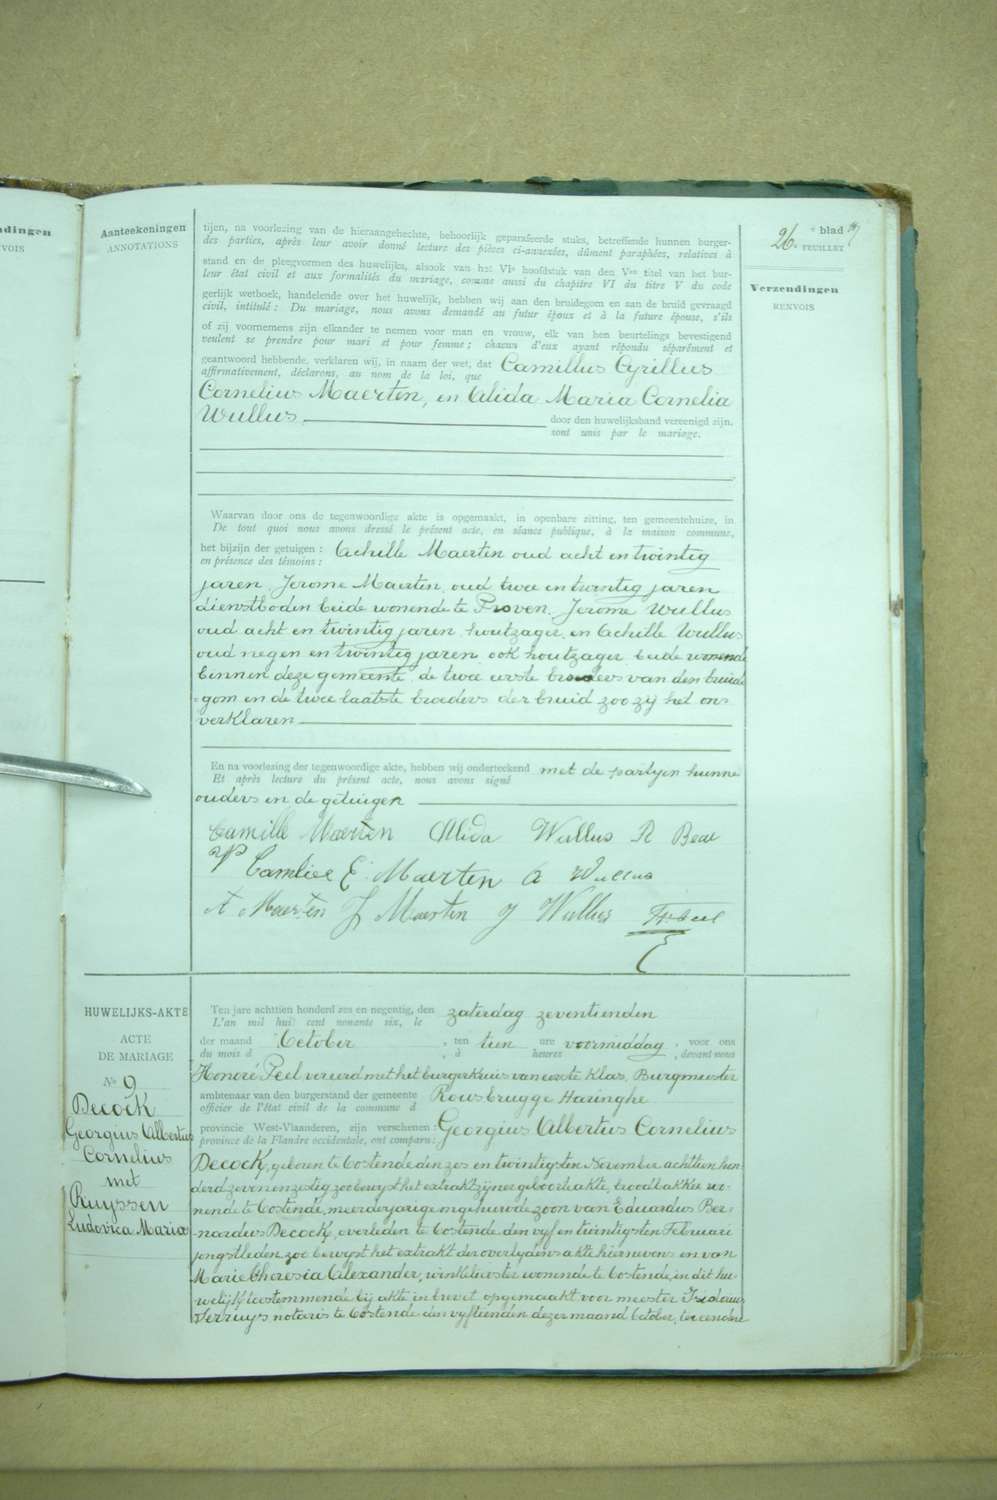 ndingen
VOIS
Aanteekeningen
ANNOTATIONS
26. e blad
FEUILLET
Verzendingen
RENVOIS
tijen, na voorlezing van de hieraangehechte, behoorlijk geparafeerde stuks, betreffende hunnen burger-
des parties, après leur avoir donné lecture des pièces ci-annexées, dûment paraphées, relatives à
stand en de pleegvormen des huwelijks, alsook van het VIe hoofdstuk van den Ven titel van het bur-
leur état civil et aux formalités du mariage, comme aussi du chapitre VI du titre V du code
gerlijk wetboek, handelende over het huwelijk, hebben wij aan den bruidegom en aan de bruid gevraagd
civil, intitulé : Du mariage, nous avons demandé au futur époux et à la future épouse, s'ils
of zij voornemens zijn elkander te nemen voor man en vrouw, elk van hen beurtelings bevestigend
veulent se prendre pour mari et pour femme ; chacun d'eux ayant répondu séparément et
geantwoord hebbende, verklaren wij, in naam der wet, dat Camillus Cyrillus
affirmativement, déclarons, au nom de la loi, que
Cornelius Maerten, en Alida Maria Cornelia
Wullus
door den huwelijksband vereenigd zijn.
sont unis par le mariage.
Waarvan door ons de tegenwoordige akte is opgemaakt, in openbare zitting, ten gemeentehuize, in
De tout quoi nous avons dressé le présent acte, en séance publique, à la maison commune,
het bijzijn der getuigen : Achille Maerten oud acht en twintig
en présence des témoins :
jaren, Jerome Maerten, oud twee en twintig jaren
dienstboden beide wonende te Proven, Jerome Wullus
oud acht en twintig jaren, houtzager, en Achille Wullus
oud negen en twintig jaren, ook houtzager, beide wonende
binnen deze gemeente, de twee eerste broeders van den bruide
gom en de twee laatste broeders der bruid zoo zij het ons
verklaren
En na voorlezing der tegenwoordige akte, hebben wij onderteekend met de partyen hunne
Et après lecture du présent acte, nous avons signé
ouders en de getuigen
Camille Maerten Alida Wullus R Beau
E. Maerten A Wullus
A Maerten J Maerten J Wullus
HUWELIJKS-AKTE
ACTE
DE MARIAGE
No 9
Decock
Georgius Albertus
Cornelius
met
Ruyssen
Ludovica Maria
Ten jare achttien honderd zes en negentig, den zaterdag zeventienden
L'an mil huit cent nonante six, le
der maand October, ten tien ure voormiddag, voor ons
du mois d , à heures , devant nous
Honoré Feel vereerd met het burgerkruis van eerste klas, Burgmeester
ambtenaar van den burgerstand der gemeente Rousbrugge Haringhe
officier de l'état civil de la commune d
provincie West-Vlaanderen, zijn verschenen : Georgius Albertus Cornelius
province de la Flandre occidentale, ont comparu :
Decock, geboren te Oostende den zes en twintigsten November achttien hon-
derd zeven en zestig zoo bewyst het extrakt zijner geboorteakte, broodbakker wo-
nende te Oostende, meerderjarige ongehuwde zoon van Eduardus Ber-
nardus Decock, overleden te Oostende den vyf en twintigsten Februari
jongstleden zoo bewyst het extrakt der overlydens akte hiernevens en van
Marie Theresia Alexander, winkelierster wonende te Oostende, in dit hu-
welijk toestemmende bij akte in brevet opgemaakt voor meester Isidoor
Verruys notaris te Oostende den vyftienden dezer maand October, ter eendere